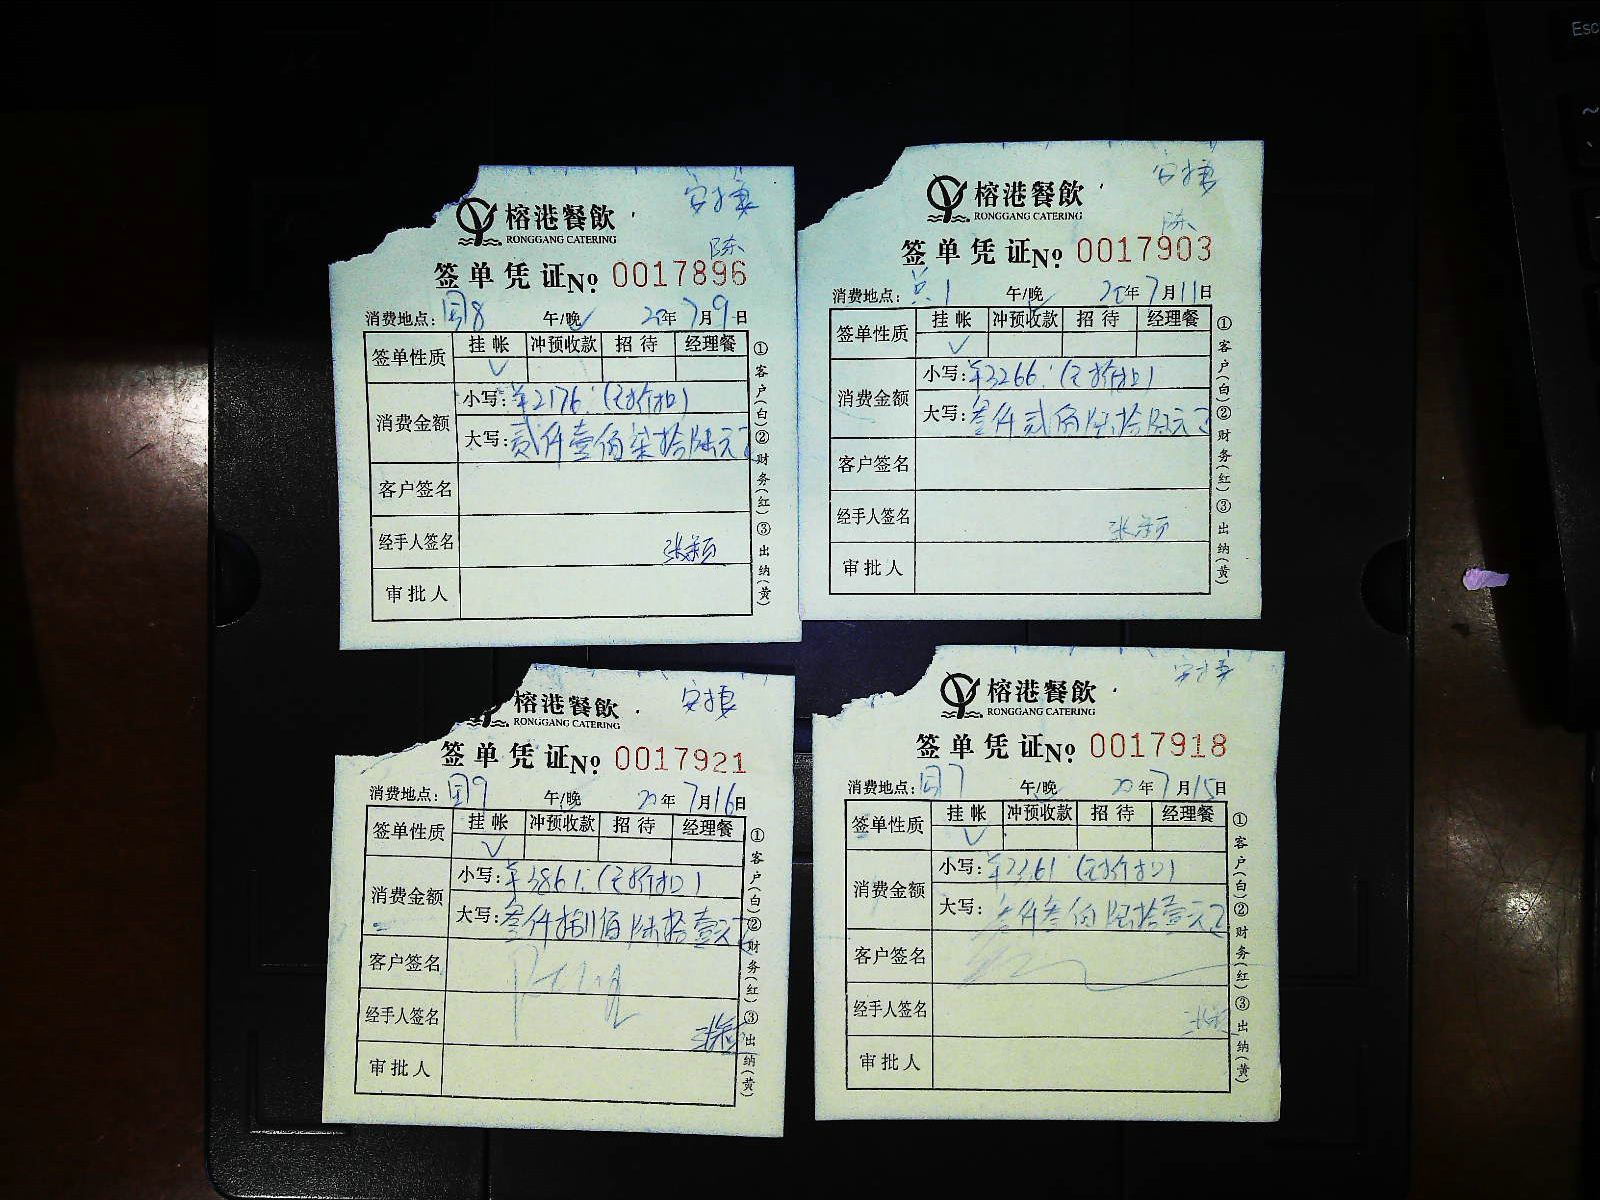 榕港餐飲
RONGGANG CATERING
陈
签单凭证No 0017896
消费地点: 国8 午/晚 20年7月9日
签单性质 挂帐 冲预收款 招待 经理餐
✓
消费金额 小写:¥2176.(已折扣)
大写:贰仟壹佰柒拾陆元正
客户签名
经手人签名 张颖
审批人
①客户(白)②财务(红)③出纳(黄)
榕港餐飲
RONGGANG CATERING
陈
签单凭证No 0017903
消费地点: 1 午/晚 20年7月11日
签单性质 挂帐 冲预收款 招待 经理餐
✓
消费金额 小写:¥3266.(已折扣)
大写:叁仟贰佰陆拾陆元正
客户签名
经手人签名 张颖
审批人
①客户(白)②财务(红)③出纳(黄)
榕港餐飲
RONGGANG CATERING
签单凭证No 0017921
消费地点: 国9 午/晚 20年7月16日
签单性质 挂帐 冲预收款 招待 经理餐
✓
消费金额 小写:¥3861.(已折扣)
大写:叁仟捌佰陆拾壹元正
客户签名
经手人签名 张颖
审批人
①客户(白)②财务(红)③出纳(黄)
榕港餐飲
RONGGANG CATERING
签单凭证No 0017918
消费地点: 国7 午/晚 20年7月15日
签单性质 挂帐 冲预收款 招待 经理餐
✓
消费金额 小写:¥3361.(已折扣)
大写:叁仟叁佰陆拾壹元正
客户签名
经手人签名 张颖
审批人
①客户(白)②财务(红)③出纳(黄)
Esc